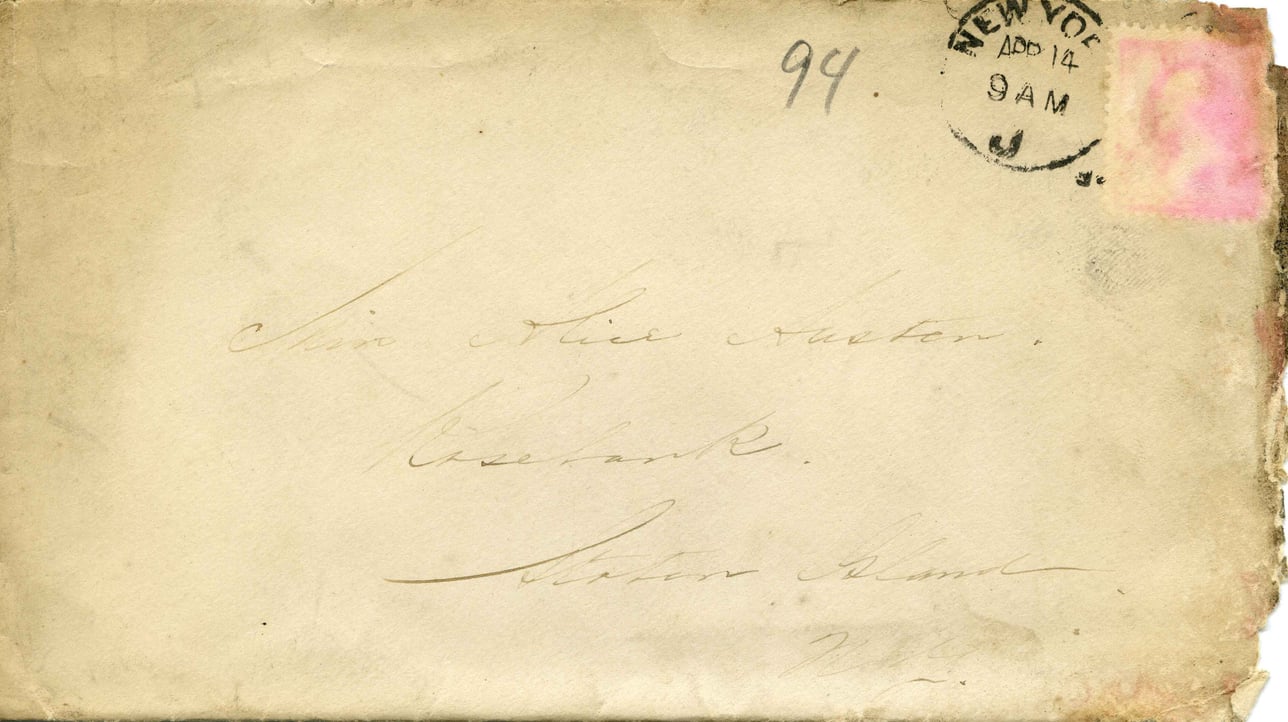 94.
NEW YO
APR 14
9 AM
J
Miss Alice Austen.
Rosebank.
Staten Island
N.Y.